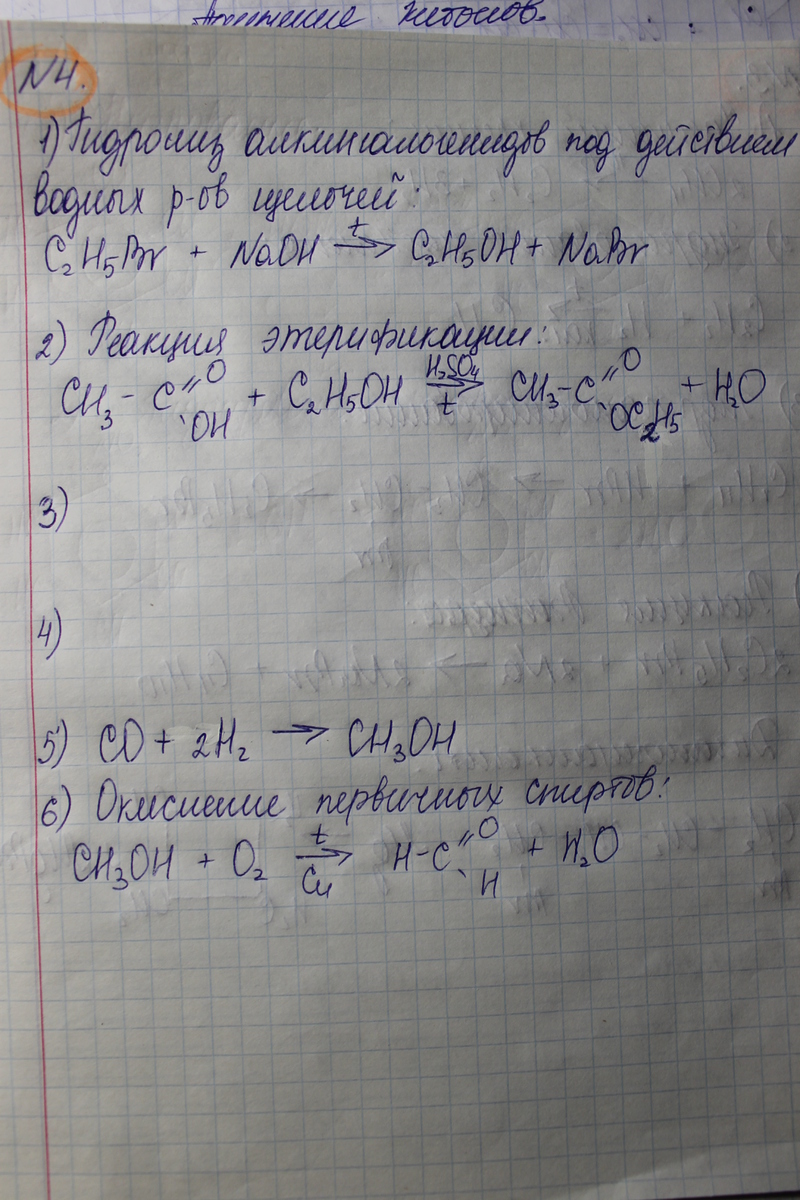 кетонов.
N4.
1) Гидролиз алкилгалогенидов под действием
водных р-ов щелочей:
C₂H₅Br + NaOH →t C₂H₅OH + NaBr
2) Реакция этерификации:
CH₃-C=O OH + C₂H₅OH ⇄ H₂SO₄ t CH₃-C=O OC₂H₅ + H₂O
3)
4)
5) CO + 2H₂ → CH₃OH
6) Окисление первичных спиртов:
CH₃OH + O₂ →t Cu H-C=O H + H₂O